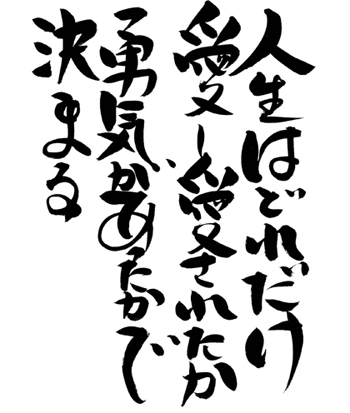 人生はどれだけ
愛し愛されたか
勇気があったかで
決まる